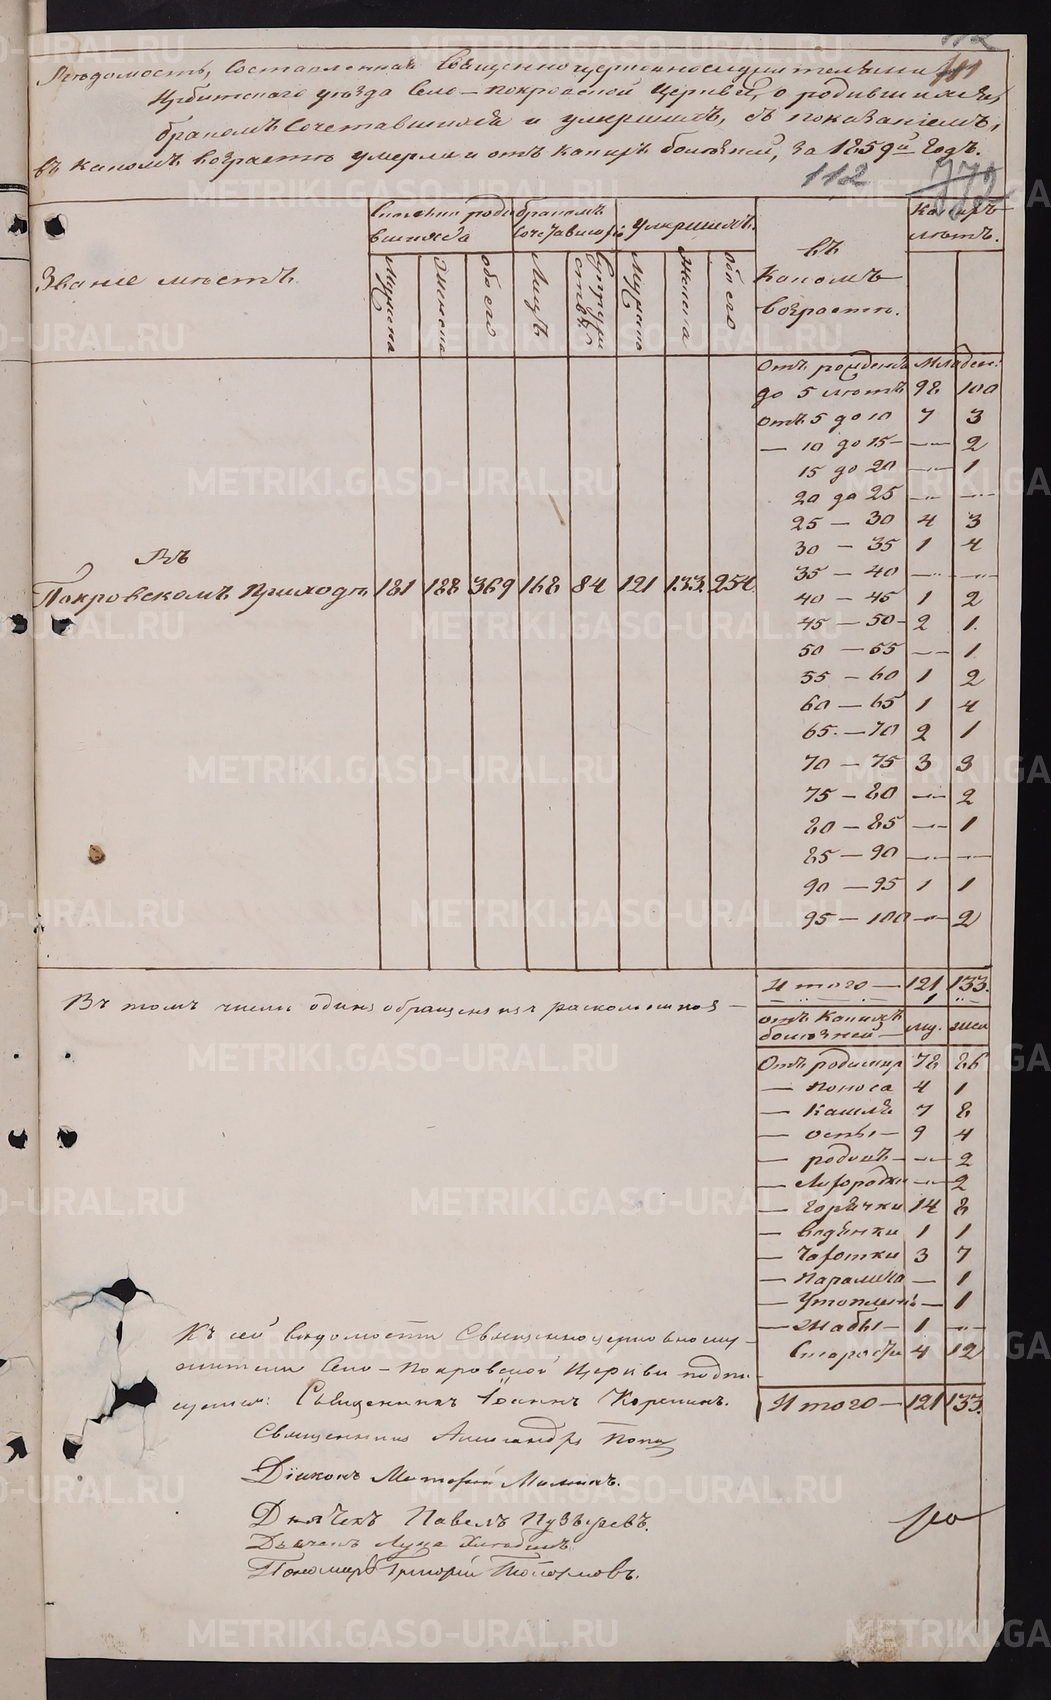 112
Ведомость, составленная Священноцерковнослужителями
Ирбитского уезда Село-Покровской Церкви, о родившихся,
бракомъ сочетавшихся и умершихъ, съ показаніемъ,
въ какомъ возрасте умерли и отъ какихъ болезней, за 1859й годъ.
112
Званіе местъ.
бракомъ
сочетавших
умершихъ.
Мужеска
Женска
обоего
Лицъ
Мужеска
Женска
обоего
въ
Какомъ
возрасте.
летъ.
Отъ рожденія Младен:
до 5 летъ 98 100
отъ 5 до 10 7 3
— 10 до 15 — — 2
15 до 20 — — 1
20 до 25 — —
25 — 30 4 3
30 — 35 1 4
35 — 40 — —
Въ
Покровскомъ Приходе 181 188 369 168 84 121 133 254
40 — 45 1 2
45 — 50 — 2 1
50 — 55 — 1
55 — 60 1 2
60 — 65 1 4
65 — 70 2 1
70 — 75 3 3
75 — 80 — 2
80 — 85 — 1
85 — 90 — —
90 — 95 1 1
95 — 100 — 2
Итого — 121 133.
Въ томъ числе одинъ обращенъ изъ раскольниковъ —
отъ Какихъ
болезней — му. жен
Отъ родимца 78 86
— поноса 4 1
— Кашля 7 8
— оспы — 9 4
— родовъ — — 2
— Лихорадки — 2
— горячки 14 8
— водянки 1 1
— Чахотки 3 7
— паралича — 1
— Утоплен — 1
— жабы — 1 —
Старости 4 12
Итого — 121 133.
Къ сей ведомости Священноцерковнослу-
жители Село-Покровской Церкви подпи-
суемся: Священникъ Іоаннъ
Священникъ Александръ Попо
Діаконъ
Дьячекъ Павелъ Пузыревъ.
Дьячекъ Лука
Пономарь Григорій